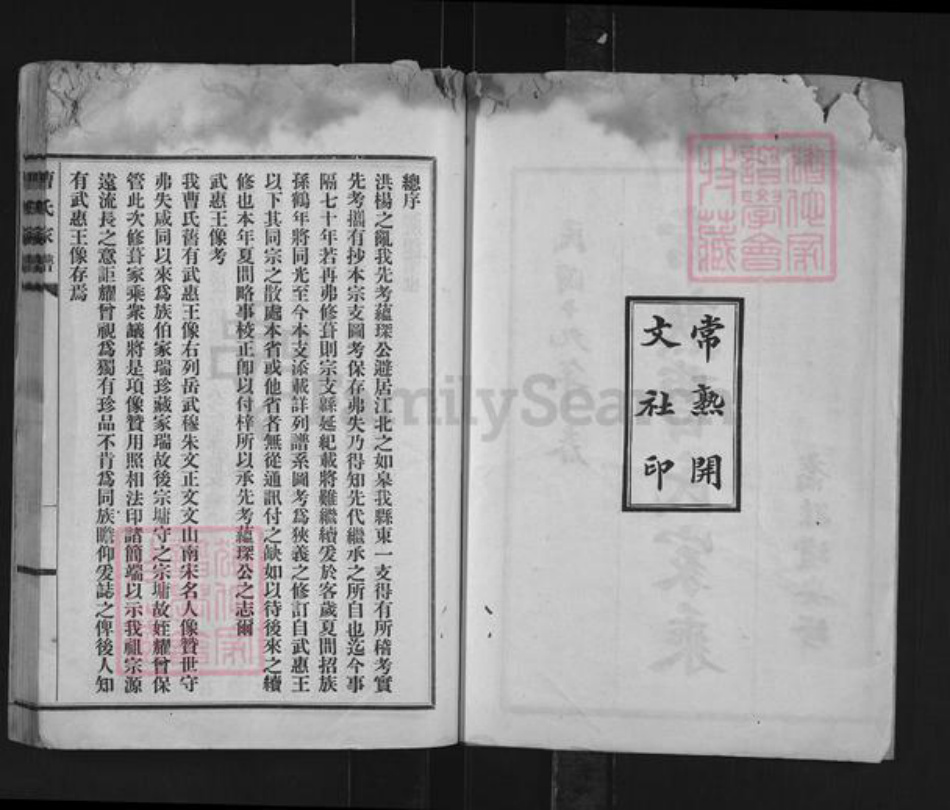 常熟開
文社印
總序
洪楊之亂我先考蘊琛公避居江北之如皋我縣東一支得有所稽考實
先考攜有抄本宗支圖考保存弗失乃得知先代繼承之所自也迄今事
隔七十年若再弗修葺則宗支緜延紀載將難繼續爰於客歲夏間招族
孫鶴年將同光至今本支添載詳列譜系圖考為狹義之修訂自武惠王
以下其同宗之散處本省或他省者無從通訊付之缺如以待後來之續
修也本年夏間略事校正卽以付梓所以承先考蘊琛公之志爾
武惠王像考
我曹氏舊有武惠王像右列岳武穆朱文正文文山南宋名人像贊世守
弗失咸同以來為族伯家瑞珍藏家瑞故後宗墉守之宗墉故姪耀曾保
管此次修葺家乘衆議將是項像贊用照相法印諸簡端以示我祖宗源
遠流長之意詎耀曾視為獨有珍品不肯為同族瞻仰爰誌之俾後人知
有武惠王像存焉
曹氏家譜
FamilySearch